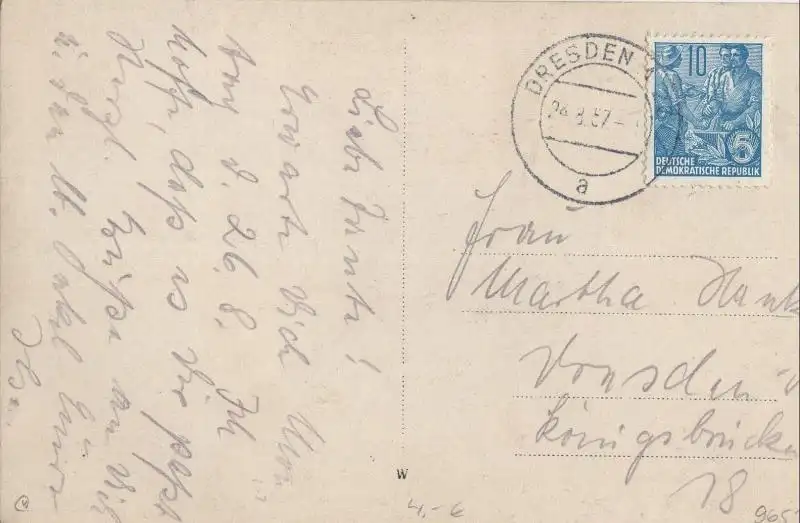 Liebe Tante!
Erwarte Dich Mon
tag d. 26. 8. Ich
hoffe, daß es Dir paßt
Herzl. Grüße an Dich
u. den lb. Onkel Eure
DRESDEN A
8.57
a
10
5
DEUTSCHE
DEMOKRATISCHE REPUBLIK
Frau
Martha
Dresden
Königsbrücke
18
W
4,- €
965